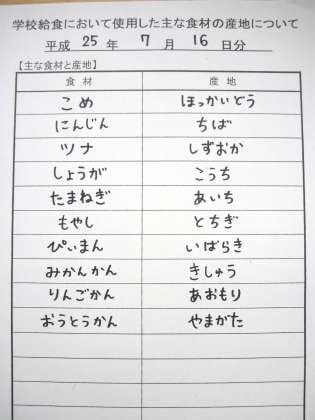 学校給食において使用した主な食材の産地について
平成 25 年 7 月 16 日分
【主な食材と産地】
食材 産地
こめ ほっかいどう
にんじん ちば
ツナ しずおか
しょうが こうち
たまねぎ あいち
もやし とちぎ
ぴぃまん いばらき
みかんかん きしゅう
りんごかん あおもり
おうとうかん やまがた